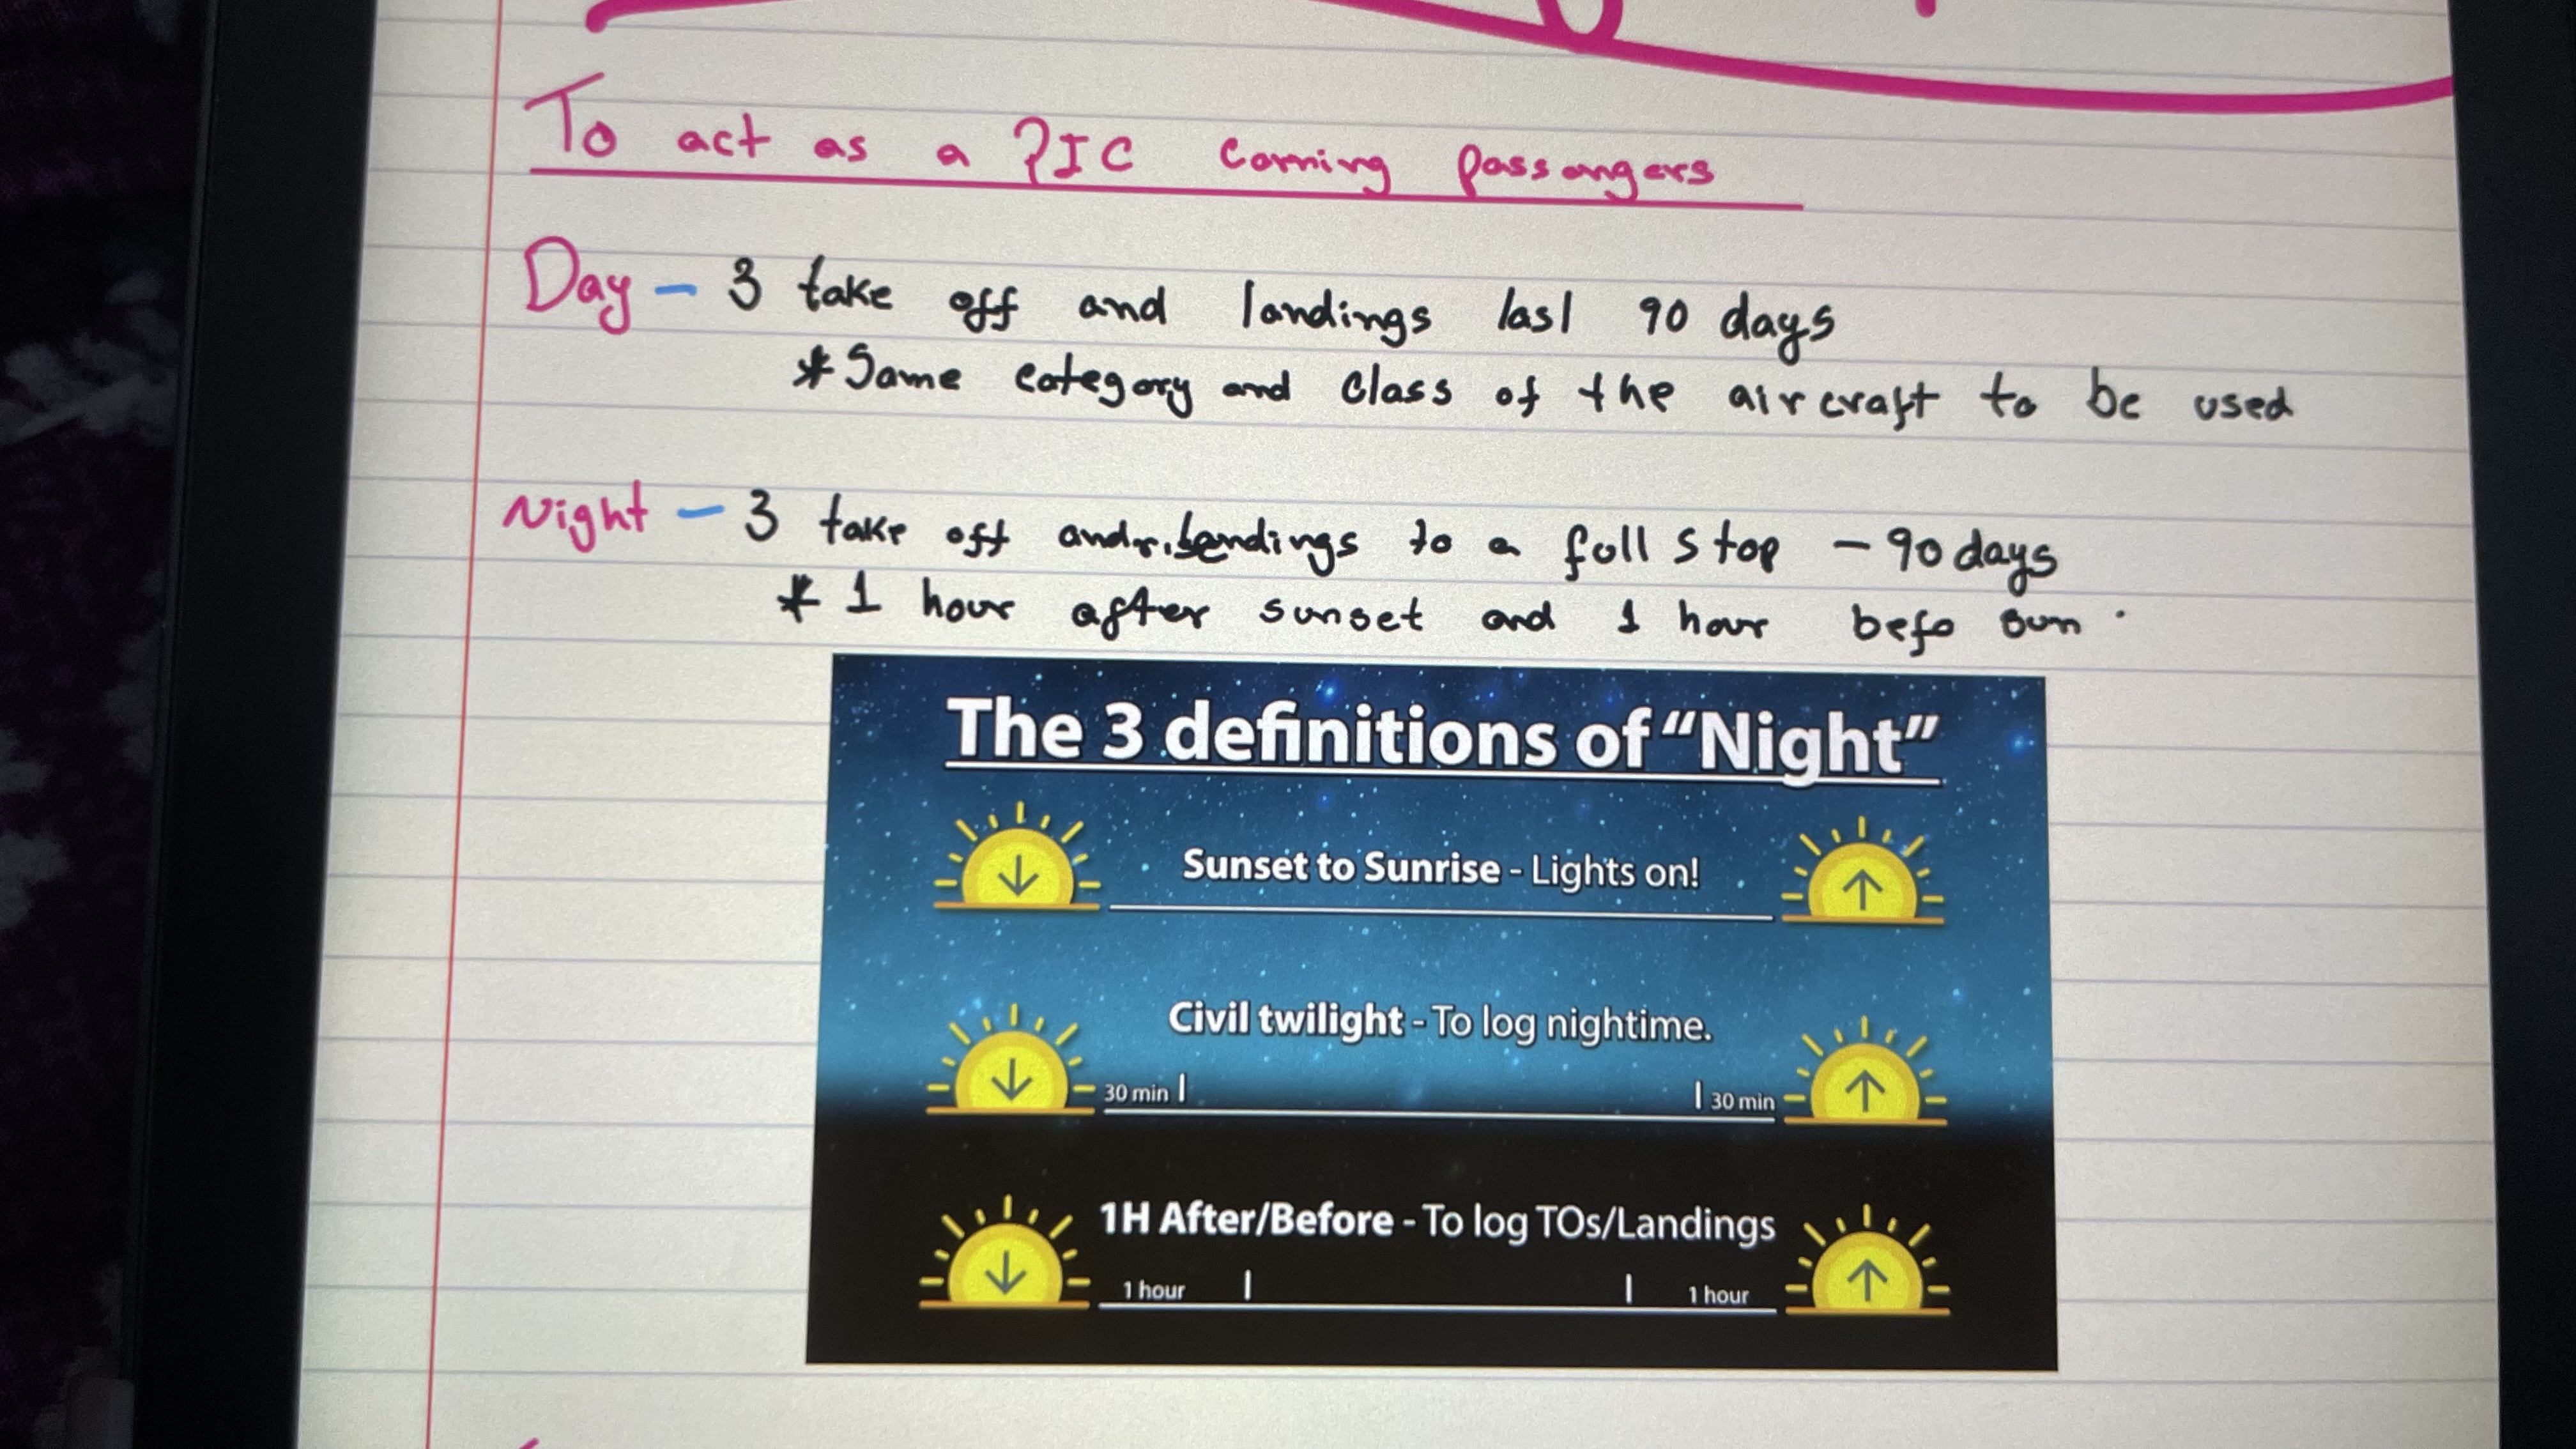 To act as a PIC carrying passangers
Day - 3 take off and landings last 90 days
* Same category and class of the aircraft to be used
Night - 3 take off and landings to a full stop - 90 days
* 1 hour after sunset and 1 hour befo sun
The 3 definitions of "Night"
Sunset to Sunrise - Lights on!
Civil twilight - To log nightime.
30 min
30 min
1H After/Before - To log TOs/Landings
1 hour
1 hour